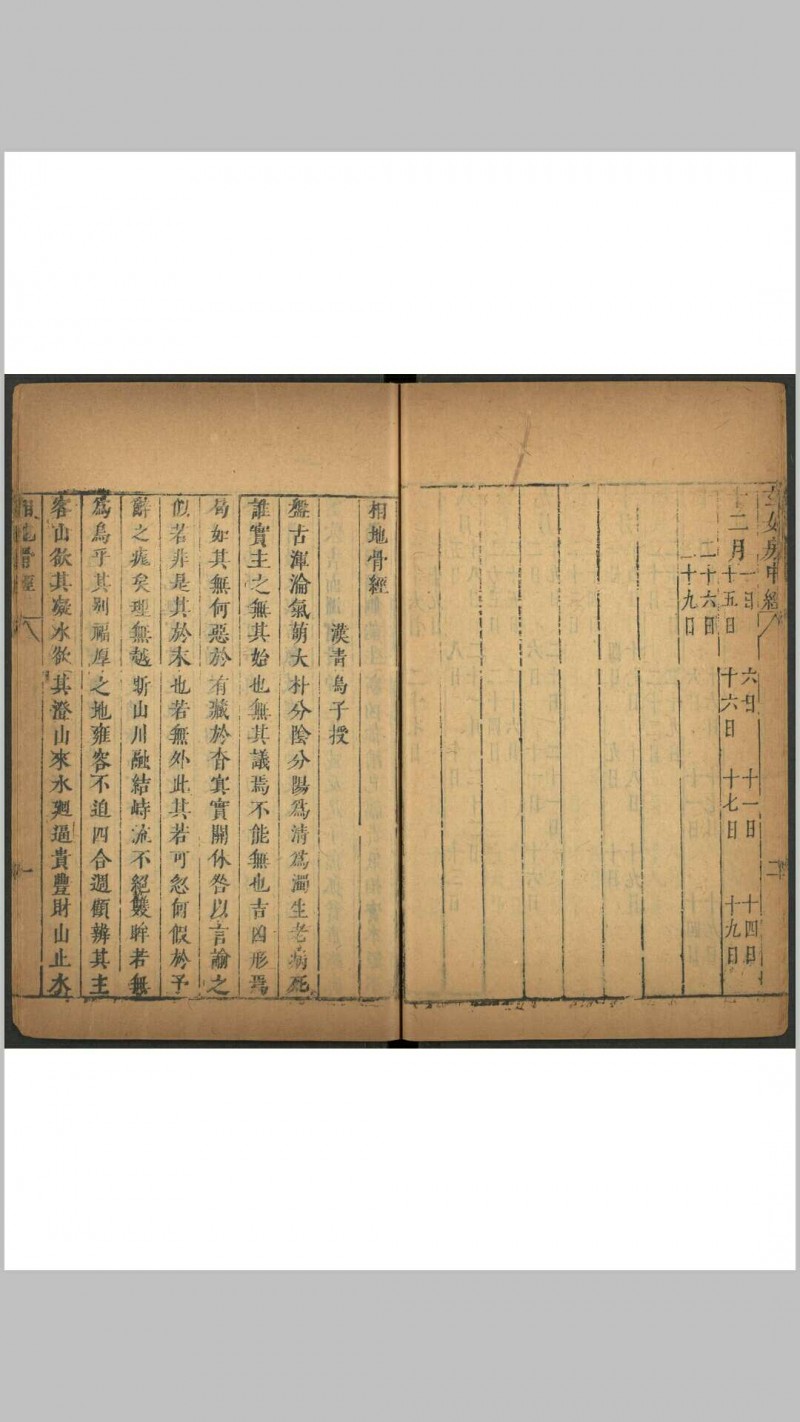 玄女房中經
二
十二月一日 六日 十一日 十四日
十五日 十六日 十七日 十九日
二十六日
二十九日
相地骨經
漢青烏子授
盤古渾淪氣萌大朴分陰分陽爲清爲濁生老病死
誰實主之無其始也無其議焉不能無也吉凶形焉
曷如其無何惡於有藏於杳冥實關休咎以言諭之
似若非是其於末也若無外此其若可忽何假於予
辭之疣矣理無越斯山川融結峙流不絕雙眸若無
爲烏乎其別福厚之地雍容不迫四合週顧辨其主
客山欲其凝水欲其澄山來水廻逼貴豐財山止水
相地骨經
一